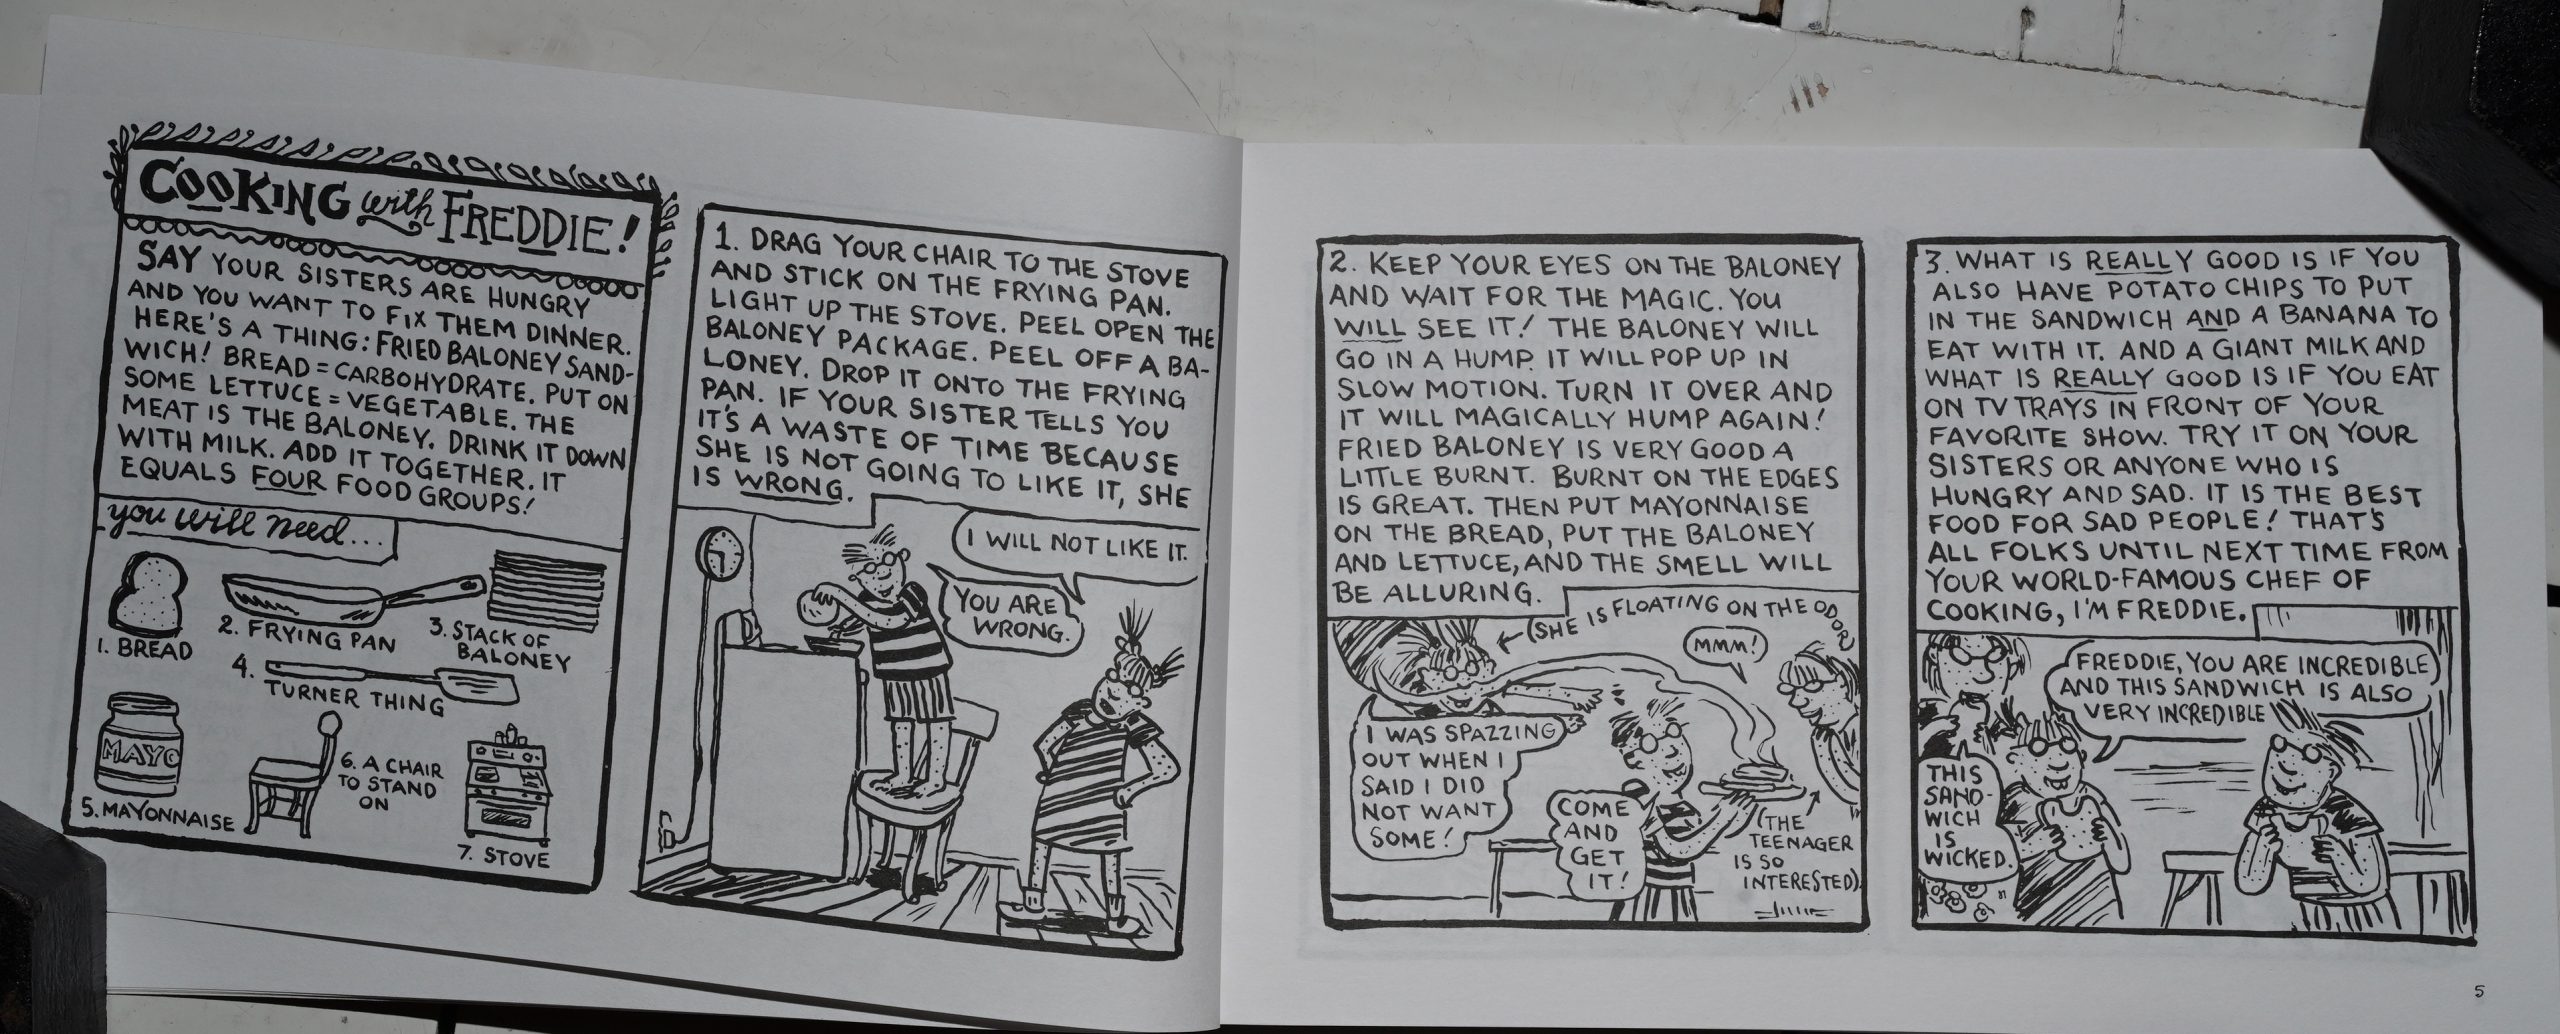 COOKING with FREDDIE!
SAY YOUR SISTERS ARE HUNGRY
AND YOU WANT TO FIX THEM DINNER.
HERE'S A THING: FRIED BALONEY SAND-
WICH! BREAD = CARBOHYDRATE. PUT ON
SOME LETTUCE = VEGETABLE. THE
MEAT IS THE BALONEY. DRINK IT DOWN
WITH MILK. ADD IT TOGETHER. IT
EQUALS FOUR FOOD GROUPS!
you will need...
1. BREAD
2. FRYING PAN
3. STACK OF
BALONEY
4.
TURNER THING
MAYO
5. MAYONNAISE
6. A CHAIR
TO STAND
ON
7. STOVE
1. DRAG YOUR CHAIR TO THE STOVE
AND STICK ON THE FRYING PAN.
LIGHT UP THE STOVE. PEEL OPEN THE
BALONEY PACKAGE. PEEL OFF A BA-
LONEY. DROP IT ONTO THE FRYING
PAN. IF YOUR SISTER TELLS YOU
IT'S A WASTE OF TIME BECAUSE
SHE IS NOT GOING TO LIKE IT, SHE
IS WRONG.
I WILL NOT LIKE IT.
YOU ARE
WRONG.
2. KEEP YOUR EYES ON THE BALONEY
AND WAIT FOR THE MAGIC. YOU
WILL SEE IT! THE BALONEY WILL
GO IN A HUMP. IT WILL POP UP IN
SLOW MOTION. TURN IT OVER AND
IT WILL MAGICALLY HUMP AGAIN!
FRIED BALONEY IS VERY GOOD A
LITTLE BURNT. BURNT ON THE EDGES
IS GREAT. THEN PUT MAYONNAISE
ON THE BREAD, PUT THE BALONEY
AND LETTUCE, AND THE SMELL WILL
BE ALLURING.
(SHE IS FLOATING ON THE ODOR)
MMM!
I WAS SPAZZING
OUT WHEN I
SAID I DID
NOT WANT
SOME!
COME
AND
GET
IT!
(THE
TEENAGER
IS SO
INTERESTED)
3. WHAT IS REALLY GOOD IS IF YOU
ALSO HAVE POTATO CHIPS TO PUT
IN THE SANDWICH AND A BANANA TO
EAT WITH IT. AND A GIANT MILK AND
WHAT IS REALLY GOOD IS IF YOU EAT
ON TV TRAYS IN FRONT OF YOUR
FAVORITE SHOW. TRY IT ON YOUR
SISTERS OR ANYONE WHO IS
HUNGRY AND SAD. IT IS THE BEST
FOOD FOR SAD PEOPLE! THAT'S
ALL FOLKS UNTIL NEXT TIME FROM
YOUR WORLD-FAMOUS CHEF OF
COOKING, I'M FREDDIE.
FREDDIE, YOU ARE INCREDIBLE
AND THIS SANDWICH IS ALSO
VERY INCREDIBLE
THIS
SAND-
WICH
IS
WICKED.
5